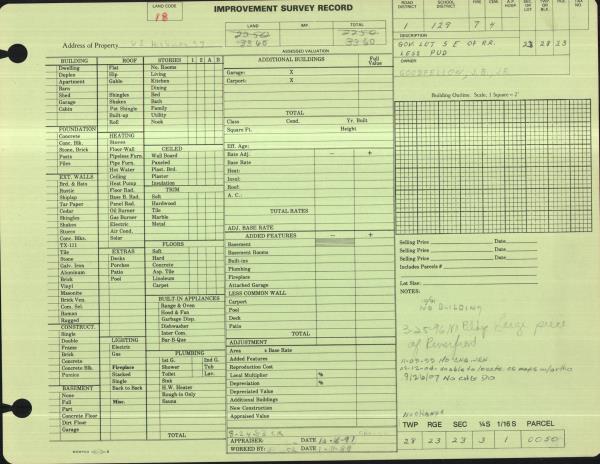 LAND CODE
18
IMPROVEMENT SURVEY RECORD
LAND IMP. TOTAL
2250 2250
3360 3360
ASSESSED VALUATION
ROAD DISTRICT SCHOOL DISTRICT FIRE CEM. A.P. HOSP. SEC OR LOT TWP. OR BLK. RGE TAX NO.
1 129 7 4
DESCRIPTION
GOV LOT 5 E OF RR. 23 28 23
LESS PUD
OWNER
Address of Property
BUILDING ROOF STORIES 1 2 A B
Dwelling Flat No. Rooms
Duplex Hip Living
Apartment Gable Kitchen
Barn Dining
Shed Shingles Bed
Garage Shakes Bath
Cabin Pat Shingle Family
Built-up Utility
Roll Nook
FOUNDATION
Concrete HEATING
Conc. Blk. Stoves CEILED
Stone, Brick Floor Wall Wall Board
Posts Pipeless Furn. Paneled
Piles Pipe Furn. Plast. Brd.
Hot Water Plaster
EXT. WALLS Ceiling Insulation
Brd. & Bats Heat Pump TRIM
Rustic Floor Rad. Soft
Shiplap Base B. Rad. Hardwood
Tar Paper Panel Rad. Tile
Cedar Oil Burner Marble
Shingles Gas Burner Metal
Shakes Electric
Stucco Air Cond.
Conc. Blks. Solar
TX-111 FLOORS
Tile EXTRAS Soft
Stone Decks Hard
Galv. Iron Porches Concrete
Aluminum Patio Asp. Tile
Brick Pool Linoleum
Vinyl Carpet
Masonite
Brick Ven. BUILT-IN APPLIANCES
Com. Sel. Range & Oven
Roman Hood & Fan
Rugged Garbage Disp.
CONSTRUCT. Dishwasher
Single Inter Com.
Double LIGHTING Bar-B-Que
Frame Electric
Brick Gas PLUMBING
Concrete 1st G. 2nd G.
Concrete Blk. Fireplace Shower Tub
Pumice Stacked Toilet Lav.
Single Sink
BASEMENT Back to Back H.W. Heater
None Rough-in Only
Full Misc. Sauna
Part
Concrete Floor
Dirt Floor
Garage TOTAL
ADDITIONAL BUILDINGS Full Value
Garage: X
Carport: X
TOTAL
Class Cond. Yr. Built
Square Ft. Height
Eff. Age:
Rate Adj. − +
Base Rate
Heat:
Insul:
Roof:
A. C.:
TOTAL RATES
ADJ. BASE RATE
ADDED FEATURES − +
Basement
Basement Rooms
Built-ins
Plumbing
Fireplace
Attached Garage
LESS COMMON WALL
Carport
Pool
Deck
Patio
TOTAL
ADJUSTMENT
Area x Base Rate
Added Features
Reproduction Cost
Local Multiplier %
Depreciation %
Depreciated Value
Additional Buildings
New Construction
Appraised Value
APPRAISER: DATE
WORKED BY: DATE
Building Outline. Scale, 1 Square = 2'
Selling Price Date
Selling Price Date
Selling Price Date
Includes Parcels #
Lot Size:
NOTES:
NO BUILDING
3-25-96 N Bldg Large piece
of Riverfront
NO CHANGE
TWP RGE SEC ¼S 1/16 S PARCEL
28 23 23 3 1 0050